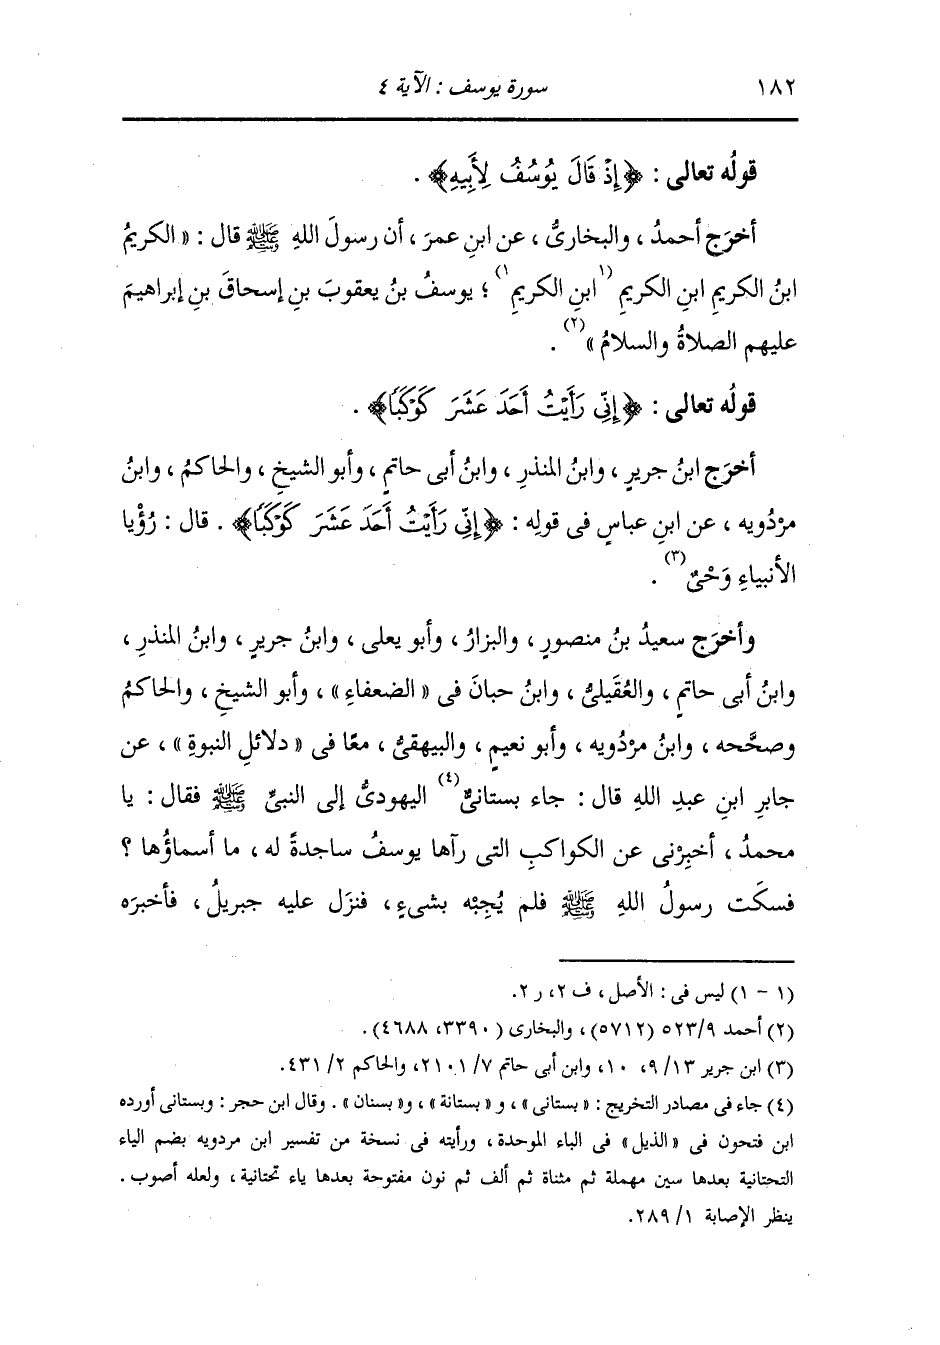 ١٨٢ سورة يوسف : الآية ٤
قولُه تعالى : ﴿إِذْ قَالَ يُوسُفُ لِأَبِيهِ﴾ .
أخرَج أحمدُ ، والبخارىُّ ، عن ابنِ عمرَ ، أن رسولَ اللهِ ﷺ قال : « الكريمُ
ابنُ الكريمِ ابنِ الكريمِ (١ ابنِ الكريمِ ١) ؛ يوسفُ بنُ يعقوبَ بنِ إسحاقَ بنِ إبراهيمَ
عليهم الصلاةُ والسلامُ »(٢) .
قولُه تعالى : ﴿إِنِّى رَأَيْتُ أَحَدَ عَشَرَ كَوْكَبًا﴾ .
أخرَج ابنُ جريرٍ ، وابنُ المنذرِ ، وابنُ أبى حاتمٍ ، وأبو الشيخِ ، والحاكمُ ، وابنُ
مرْدُويه ، عن ابنِ عباسٍ فى قولِه : ﴿إِنِّى رَأَيْتُ أَحَدَ عَشَرَ كَوْكَبًا﴾ . قال : رُؤْيا
الأنبياءِ وَحْىٌ(٣) .
وأخرَج سعيدُ بنُ منصورٍ ، والبزارُ ، وأبو يعلى ، وابنُ جريرٍ ، وابنُ المنذرِ ،
وابنُ أبى حاتمٍ ، والعُقَيلىُّ ، وابنُ حبانَ فى « الضعفاءِ » ، وأبو الشيخِ ، والحاكمُ
وصحَّحه ، وابنُ مرْدُويه ، وأبو نعيمٍ ، والبيهقىُّ ، معًا فى « دلائلِ النبوةِ » ، عن
جابرِ ابنِ عبدِ اللهِ قال : جاء بستانىٌّ(٤) اليهودىُّ إلى النبىِّ ﷺ فقال : يا
محمدُ ، أخبِرْنى عن الكواكبِ التى رآها يوسفُ ساجدةً له ، ما أسماؤُها ؟
فسكَت رسولُ اللهِ ﷺ فلم يُجِبْه بشىءٍ ، فنزَل عليه جبريلُ ، فأخبرَه
(١ - ١) ليس فى : الأصل ، ف ٢، ر ٢.
(٢) أحمد ٥٢٣/٩ (٥٧١٢) ، والبخارى (٣٣٩٠، ٤٦٨٨) .
(٣) ابن جرير ٩/١٣، ١٠، وابن أبى حاتم ٢١٠١/٧، والحاكم ٤٣١/٢.
(٤) جاء فى مصادر التخريج : « بستانى » ، و « بستانة » ، و« بسنان » . وقال ابن حجر : وبستانى أورده
ابن فتحون فى « الذيل » فى الباء الموحدة ، ورأيته فى نسخة من تفسير ابن مردويه بضم الياء
التحتانية بعدها سين مهملة ثم مثناة ثم ألف ثم نون مفتوحة بعدها ياء تحتانية ، ولعله أصوب .
ينظر الإصابة ٢٨٩/١.